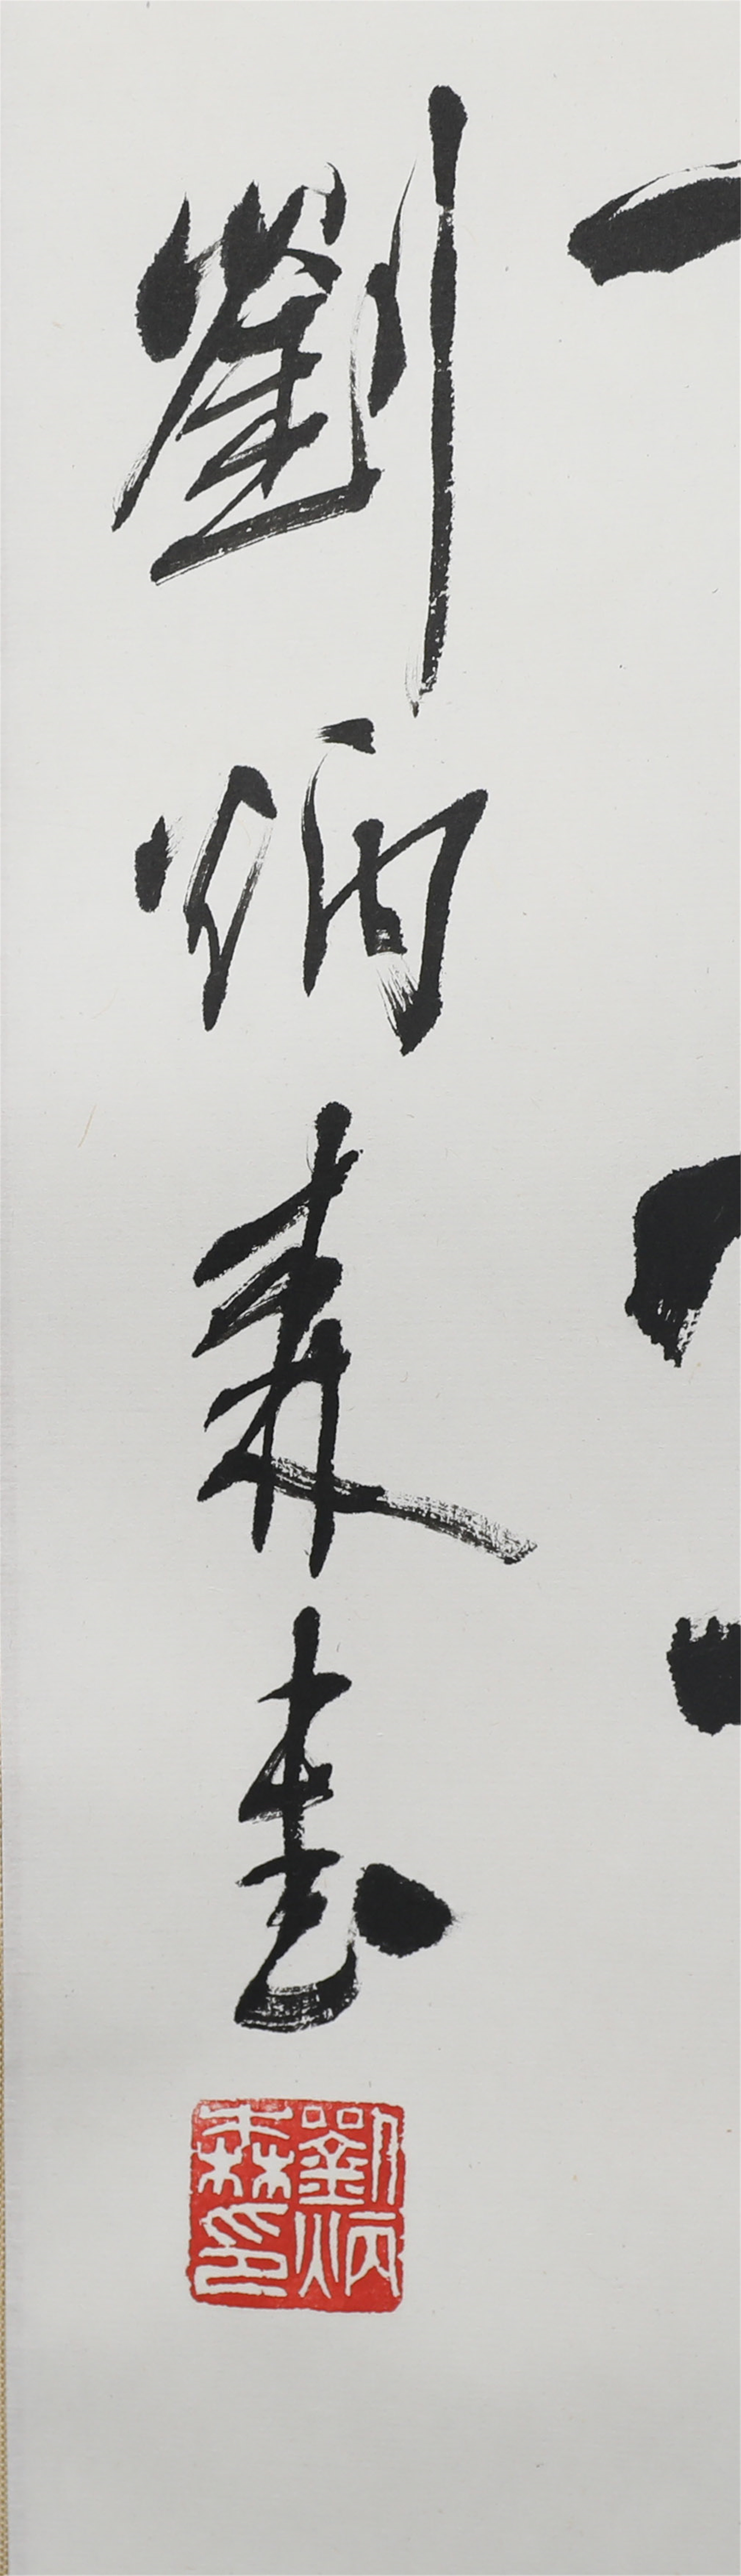 劉炳森書
劉炳
森印